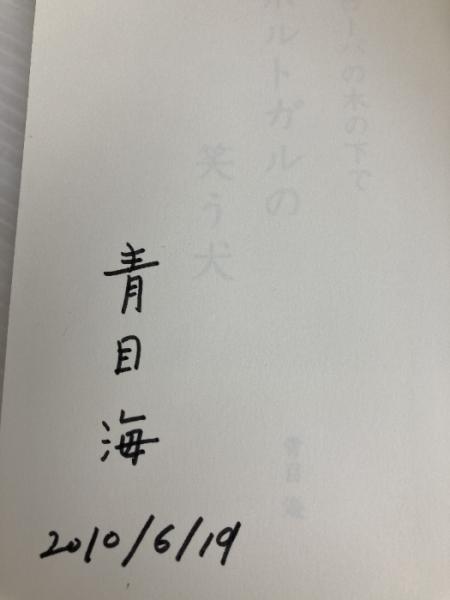 ローバの木の下で
ポルトガルの
笑う犬
青目 海
青目海
2010/6/19